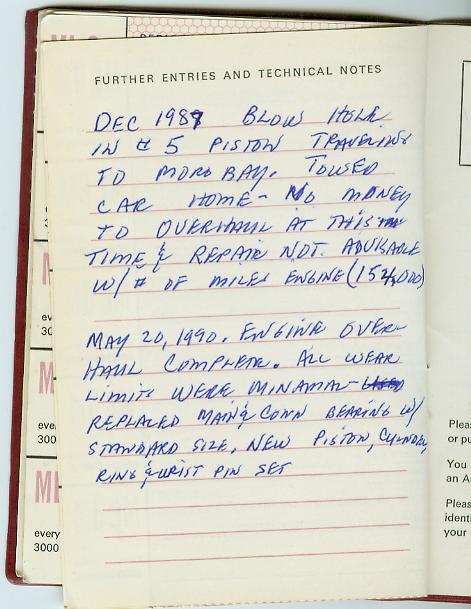 FURTHER ENTRIES AND TECHNICAL NOTES
DEC 1987 BLOW HOLE
IN # 5 PISTON TRAVELING
TO MORO BAY. TOWED
CAR HOME - NO MONEY
TO OVERHAUL AT THIS
TIME & REPAIR NOT ADVISABLE
W/ # OF MILES ENGINE (152,000)
MAY 20, 1990. ENGINE OVER-
HAUL COMPLETE. ALL WEAR
LIMITS WERE MINAMAL-
REPLACED MAIN & CONN BEARING W/
STANDARD SIZE, NEW PISTON, CYLINDER,
RING & WRIST PIN SET
every
3000
Pleas
or pu
You
an A
Pleas
identi
your